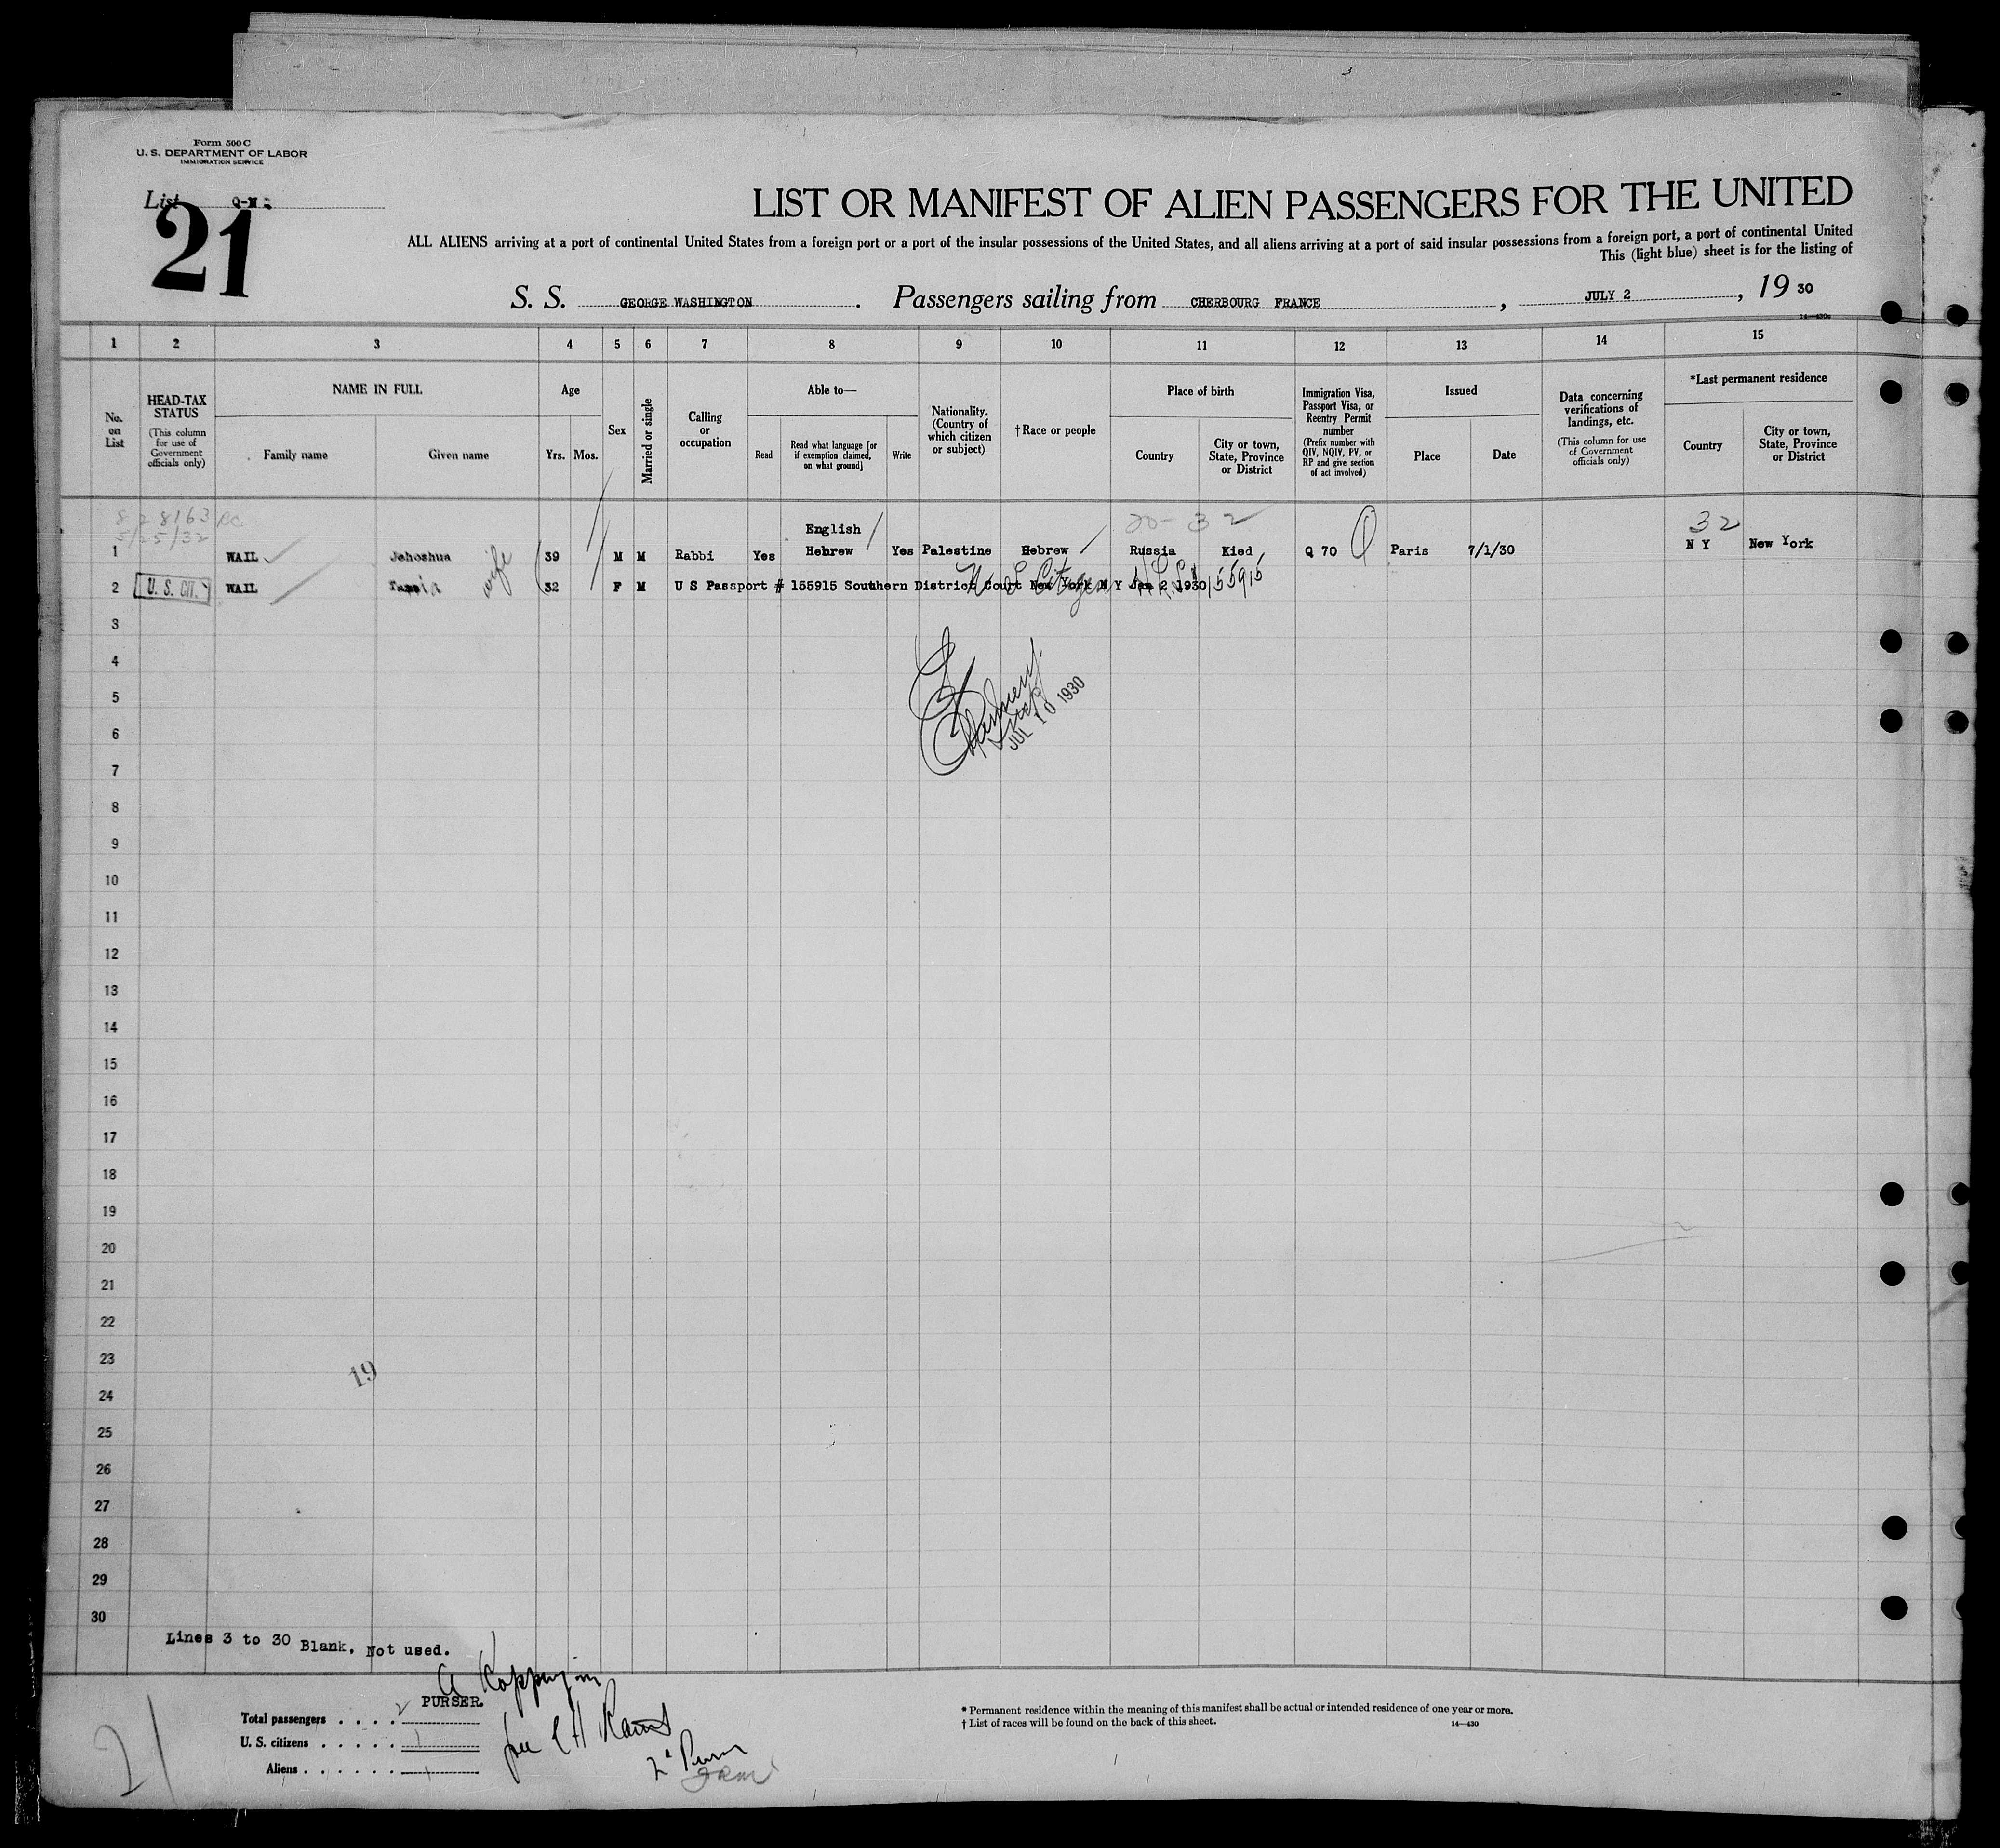 Form 500 C
U. S. DEPARTMENT OF LABOR
IMMIGRATION SERVICE
List Q-N
21
LIST OR MANIFEST OF ALIEN PASSENGERS FOR THE UNITED
ALL ALIENS arriving at a port of continental United States from a foreign port or a port of the insular possessions of the United States, and all aliens arriving at a port of said insular possessions from a foreign port, a port of continental United
This (light blue) sheet is for the listing of
S. S. GEORGE WASHINGTON. Passengers sailing from CHERBOURG FRANCE, JULY 2, 19 30
1 2 3 4 5 6 7 8 9 10 11 12 13 14 15
No. on List
HEAD-TAX STATUS (This column for use of Government officials only)
NAME IN FULL
Family name Given name
Age
Yrs. Mos.
Sex
Married or single
Calling or occupation
Able to—
Read
Read what language [or if exemption claimed, on what ground]
Write
Nationality. (Country of which citizen or subject)
† Race or people
Place of birth
Country
City or town, State, Province or District
Immigration Visa, Passport Visa, or Reentry Permit number (Prefix number with QIV, NQIV, PV, or RP and give section of act involved)
Issued
Place Date
Data concerning verifications of landings, etc. (This column for use of Government officials only)
*Last permanent residence
Country
City or town, State, Province or District
5/25/32
20- 32
32
1 WAIL Jehoshua 39 M M Rabbi Yes English Hebrew Yes Palestine Hebrew Russia Kied Q 70 Paris 7/1/30 N Y New York
wife
2 U. S. CIT. WAIL 32 F M U S Passport # 155915 Southern District Court New York N Y Jan 2 1930
155915
3
4
5
JUL 10 1930
6
7
8
9
10
11
12
13
14
15
16
17
18
19
20
21
22
23
19
24
25
26
27
28
29
30
Lines 3 to 30 Blank, Not used.
PURSER.
Total passengers . . . . 2
U. S. citizens . . . . . 1
Aliens . . . . . . 1
21
* Permanent residence within the meaning of this manifest shall be actual or intended residence of one year or more.
† List of races will be found on the back of this sheet.
14—430